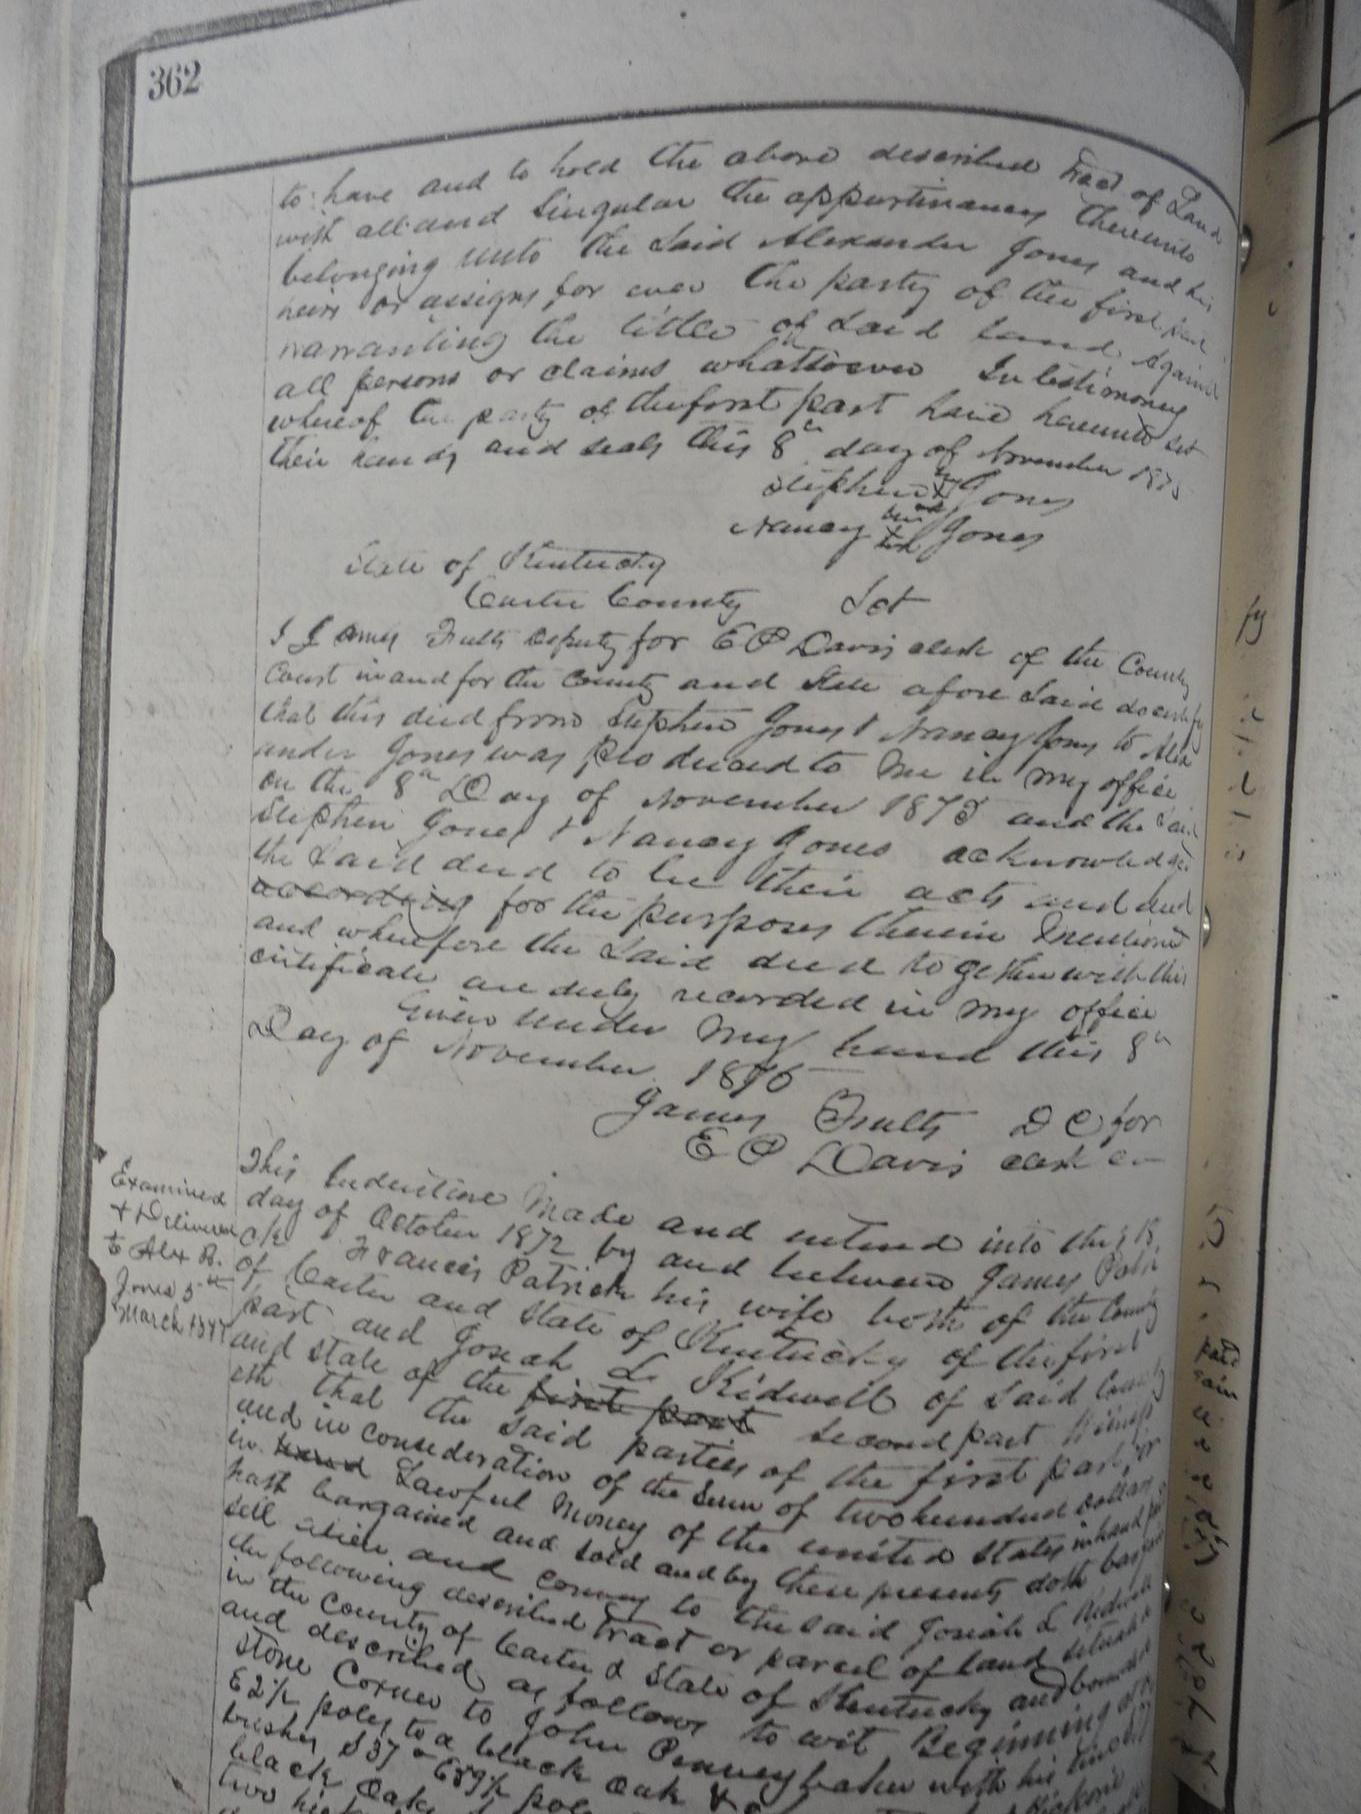 362
to have and to hold the above described tract of Land
with all and Singular the appurtinances thereunto
belonging unto the Said Alexander Jones and his
heirs or assigns for ever the party of the first part
warranting the tittle of Said land Against
all persons or claims whattsoever In testimoney
whereof the party of the first part have hereunto set
their hands and seals this 8th day of November 1875
Stephen X Jones
Nancy X Jones
State of Kentucky
Carter County Sct
I James Fults Deputy for E P Davis clerk of the County
Court in and for the County and State afore Said do certify
that this deed from Stephen Jones & Nancy Jones to Alex
ander Jones was produced to me in my office
on the 8th Day of November 1875 and the Said
Stephen Jones & Nancy Jones acknowledged
the Said deed to be their acts and deed
according for the purposes therein mentioned
and wherefore the Said deed to gether with this
certificate are duly recorded in my office
Given under my hand this 8th
Day of November 1876
James Fults D C for
E P Davis clerk
Examined
& Delivered
to Alex B.
Jones 5th
March
This Indenture Made and entered into this 18
day of October 1872 by and between James Patk
Francis Patrick his wife both of the County
of Carter and State of Kentucky of the first
part and Josiah L Kidwell of Said County
and state of the first part second part
eth that the Said parties of the first part for
and in consideration of the Sum of two hundred dollars
in hand Lawful Money of the united States in hand
hath bargained and sold and by these presents doth bargain
sell alien and convey to the said Josiah L Kidwell
the following described tract or parcel of land
in the County of Carter & State of Kentucky and bounded
and described as follows to wit Beginning
Stone Corner to John Pennybaker with his line
E 2 1/2 poles to a black oak &
bushes S 37 E 89 1/2 poles
black Oak
two